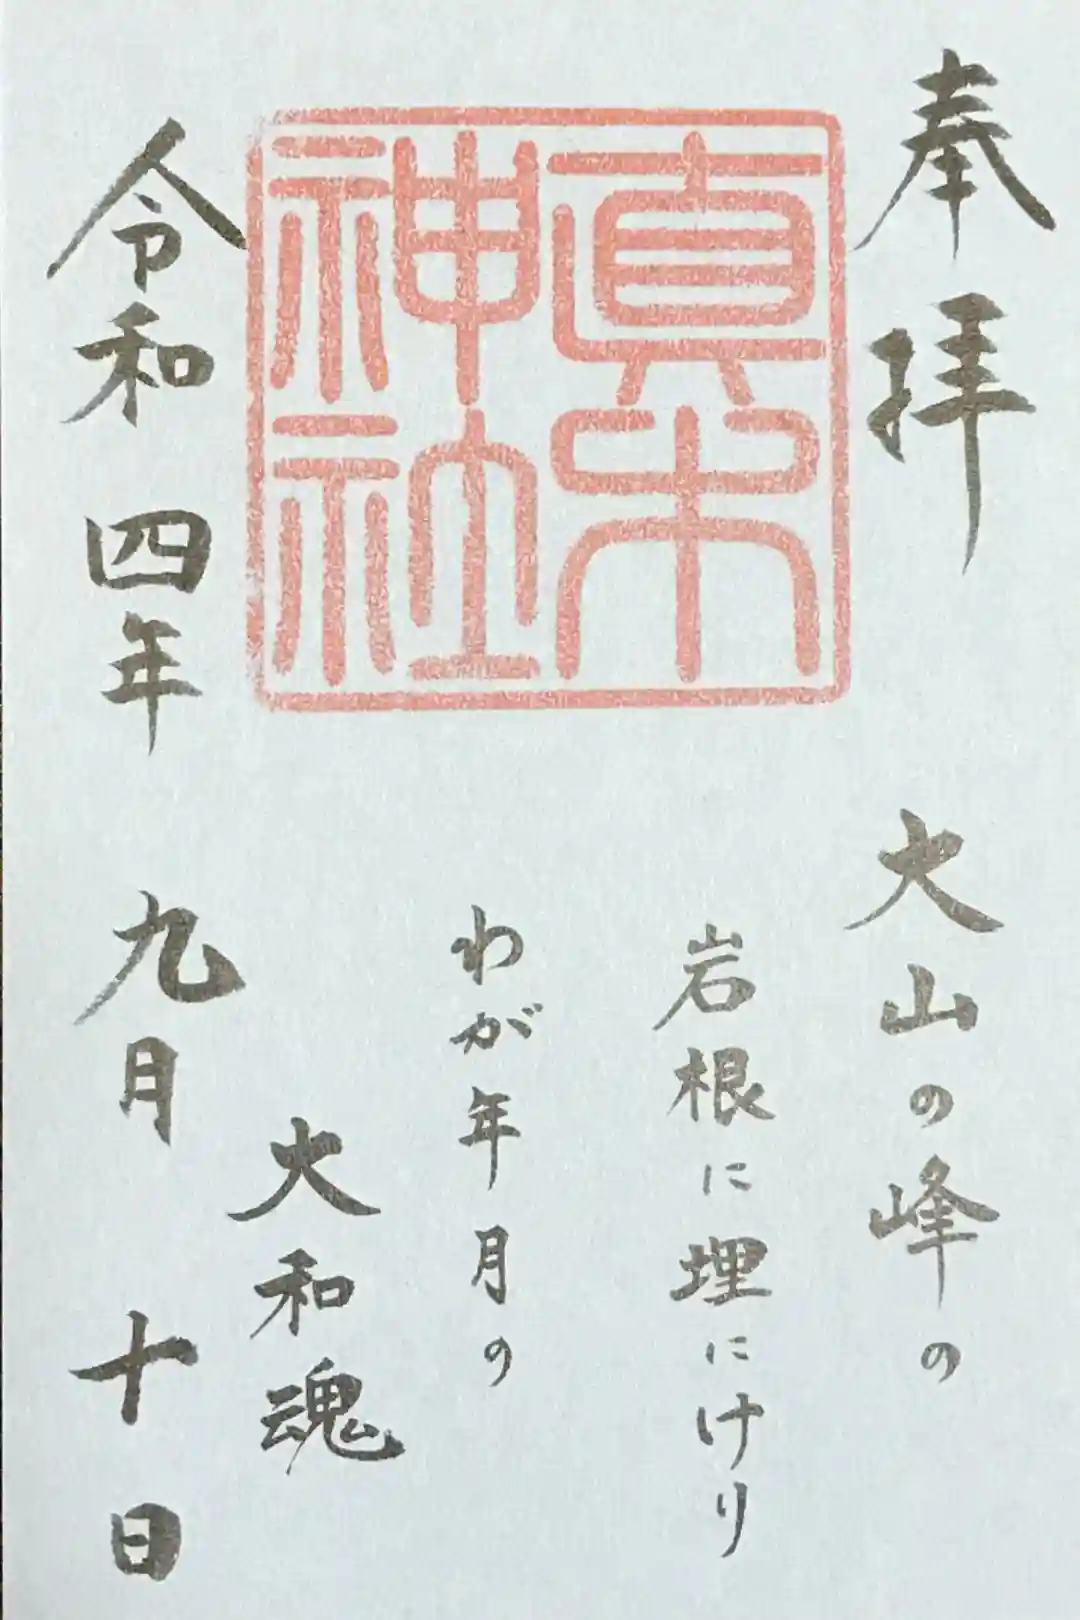 奉拝
真木神社
大山の峰の
岩根に埋にけり
わが年月の
大和魂
令和四年九月十日